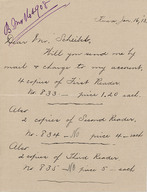 Jan. 16, 13
Dear Mr. Scheibler,
Will you send me by
mail & charge to my account,
4 copies of First Reader
No. 833 — price 1.20 each.
Also
2 copies of Second Reader,
No. 834 — No price 4 — each
Also
2 copies of Third Reader
No. 835 — No price 5 — each.